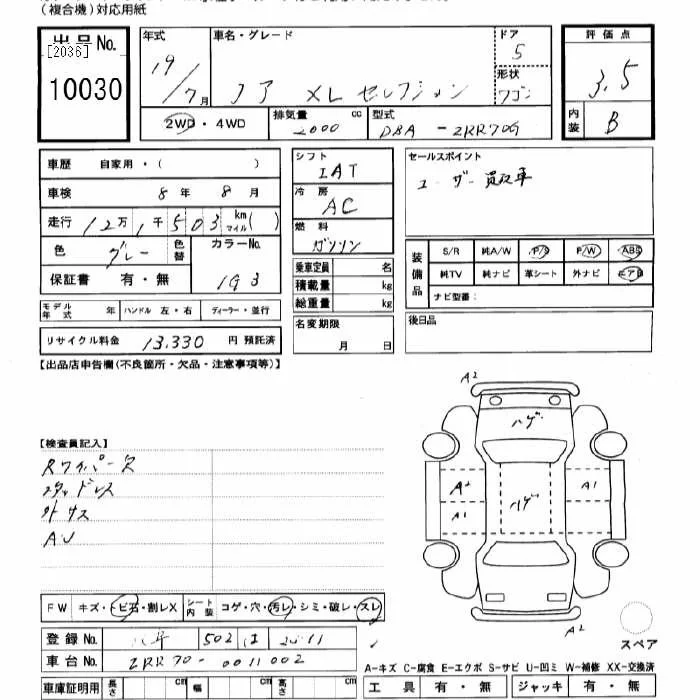 (複合機)対応用紙
出品No.
[2036]
10030
年式
19/7月
車名・グレード
ノア XL セレクション
ドア
5
形状
ワゴン
2WD・4WD
排気量
2000
cc
型式
DBA - ZRR70G
評価点
3.5
内装
B
車歴 自家用・( )
車検 8年 8月
走行 12万1千503 km マイル( )
色
グレー
色替
カラーNo.
1G3
保証書 有・無
モデル年式 年 ハンドル 左・右 ディーラー・並行
リサイクル料金 13,330 円 預託済
シフト
IAT
冷房
AC
燃料
ガソリン
乗車定員 名
積載量 kg
総重量 kg
名変期限
月 日
セールスポイント
ユーザー買取車
装備品
S/R 純A/W P/S P/W ABS
純TV 純ナビ 革シート 外ナビ エアB
ナビ型番:
後日品
【出品店申告欄(不良箇所・欠品・注意事項等)】
【検査員記入】
Rワイパー欠
スタッドレス
外サス
AU
A2
ハゲ
A2
A1
ハゲ
A1
A2
スペア
FW キズ・トビ石・割レX
シート内装 コゲ・穴・汚レ・シミ・破レ・スレ
登録No. 502 は 20-11
車台No. ZRR70-0011002
車庫証明用 長さ cm 幅 cm 高さ cm
A-キズ C-腐食 E-エクボ S-サビ U-凹ミ W-補修 XX-交換済
工具 有・無 ジャッキ 有・無